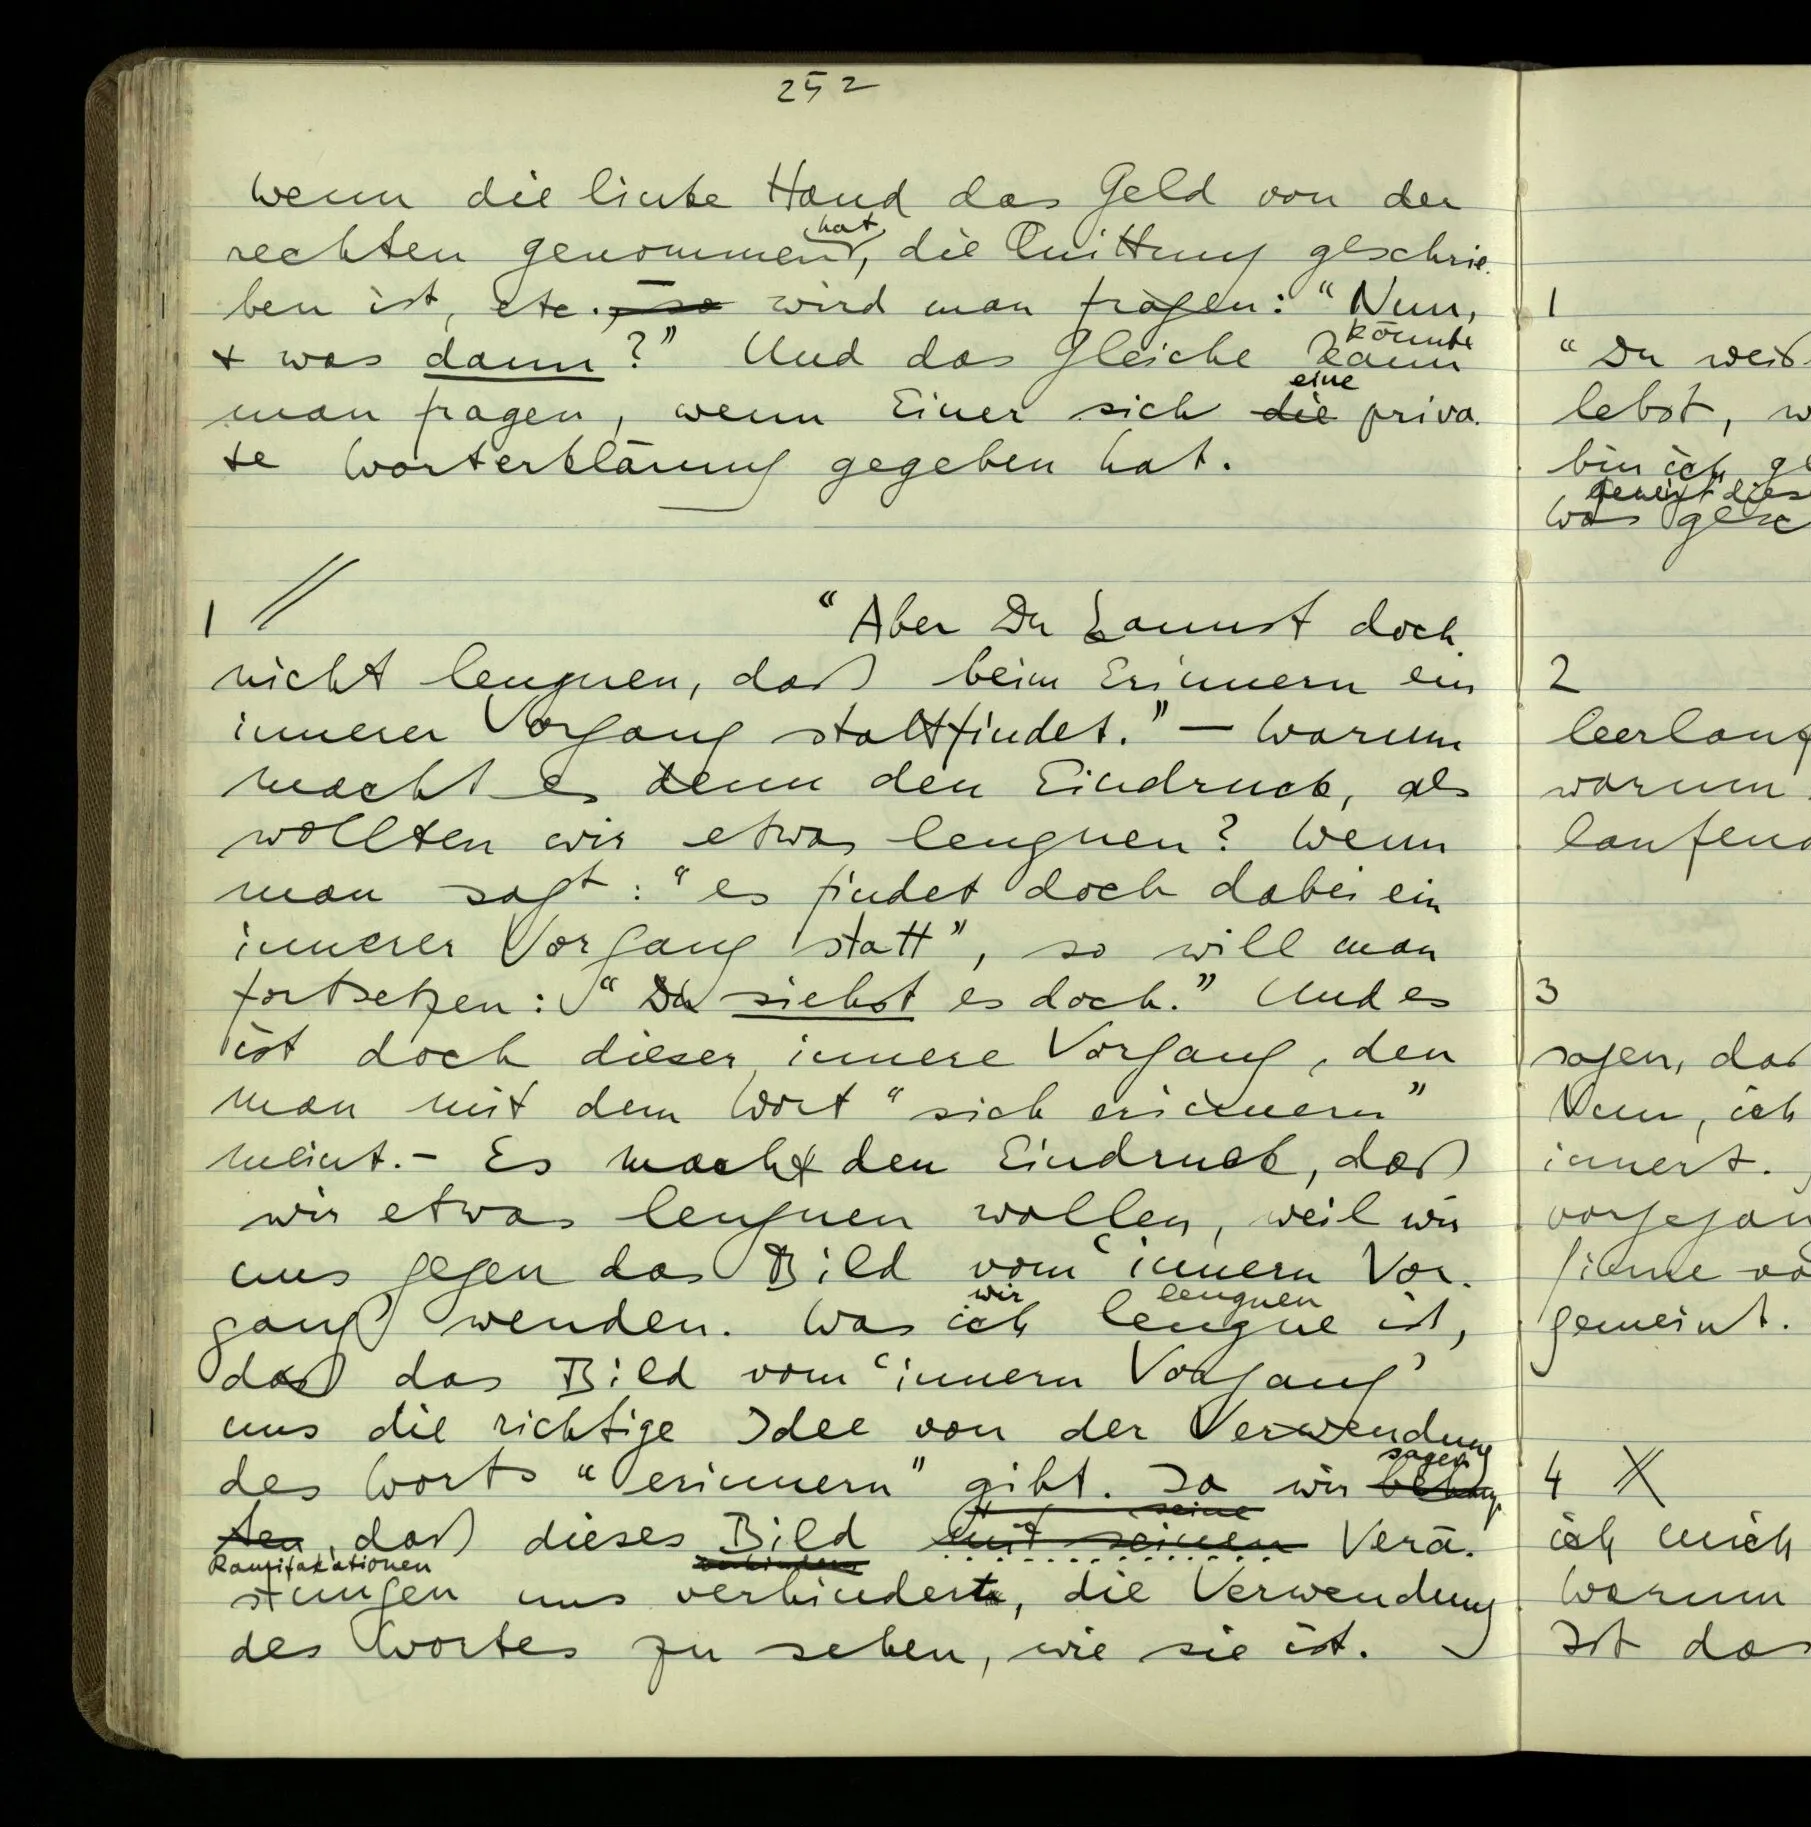 252
wenn die linke Hand das Geld von der
hat
rechten genommen, die Quittung geschrie-
ben ist, etc., so wird man fragen: “Nun,
+ was dann?” Und das Gleiche kann
könnte
man fragen, wenn Einer sich die priva-
eine
te Worterklärung gegeben hat.
1 // “Aber Du kannst doch
nicht leugnen, daß beim Erinnern ein
innerer Vorgang stattfindet.” — Warum
macht es denn den Eindruck, als
wollten wir etwas leugnen? Wenn
man sagt: “es findet doch dabei ein
innerer Vorgang statt”, so will man
fortsetzen: “Du siehst es doch.” Und es
ist doch dieser innere Vorgang, den
man mit dem Wort “sich erinnern”
meint. – Es macht den Eindruck, daß
wir etwas leugnen wollen, weil wir
uns gegen das Bild vom ‘innern Vor-
gang’ wenden. Was ich leugne ist,
wir leugnen
daß das Bild vom ‘innern Vorgang’
uns die richtige Idee von der Verwendung
des Worts “erinnern” gibt. Ja wir behaup-
sagen
ten, daß dieses Bild mit seinen Verä-
seine
Ramifikationen
stungen uns verhindert, die Verwendung
verhindern
des Wortes zu sehen, wie sie ist.
1
“Du weiß
lebst, w
bin ich ge
was gesc
2
leerlauf
warum
laufend
3
sagen, daß
Nun, ich
innert.
vorgegan
gemeint.
4 X
ich mich
Warum
Ist das